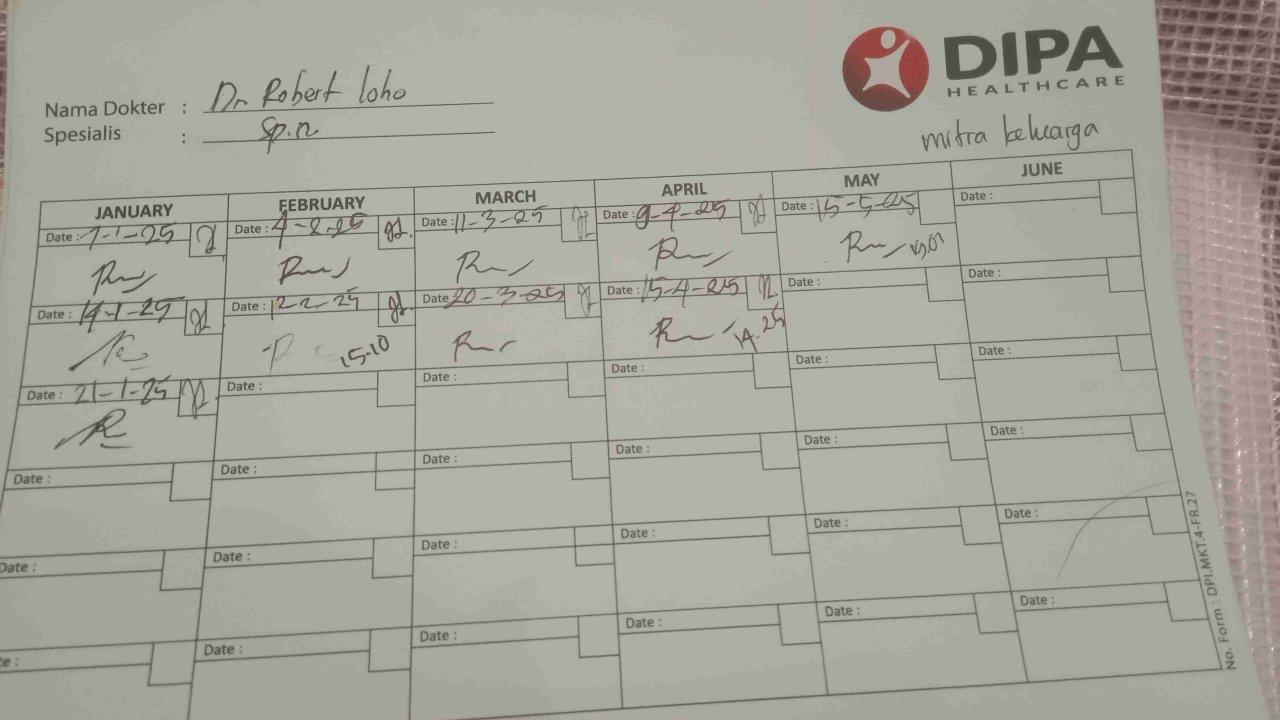 DIPA
HEALTHCARE
Nama Dokter : Dr Robert loho
Spesialis : Sp.n
mitra keluarga
JANUARY FEBRUARY MARCH APRIL MAY JUNE
Date : 7-1-25 Date : 4-2-25 Date : 11-3-25 Date : 9-4-25 Date : 15-5-25 Date :
Date : 14-1-25 Date : 12-2-25 Date : 20-3-25 Date : 15-4-25 Date : Date :
15-10 14.25
Date : 21-1-25 Date : Date : Date : Date : Date :
Date : Date : Date : Date : Date : Date :
Date : Date : Date : Date : Date : Date :
te : Date : Date : Date : Date : Date :
No. Form : DPI.MKT.4-FR.27